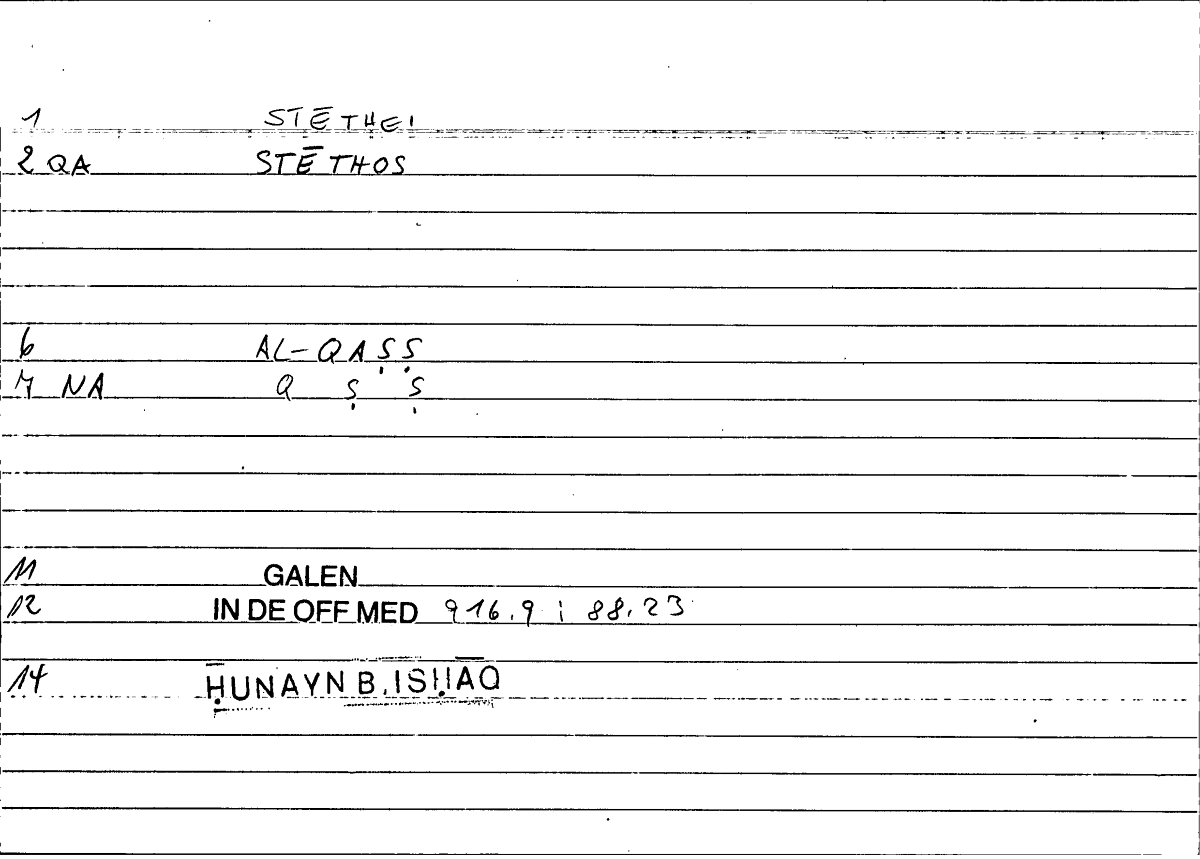 1 STĒTHEI
2 QA STĒTHOS
6 AL-QAṢṢ
7 NA Q Ṣ Ṣ
11 GALEN
12 IN DE OFF MED 916.9 ; 88.23
14 ḤUNAYN B. ISḤĀQ